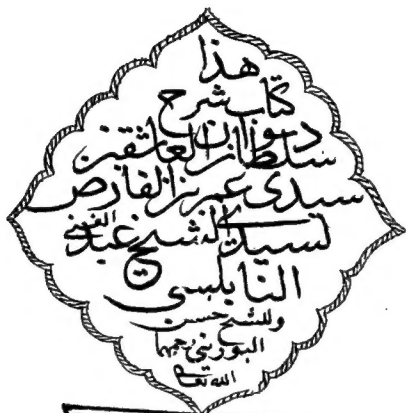 هذا
كتاب شرح
ديوان
سلطان العاشقين
سيدي عمر بن الفارض
لسيدي الشيخ عبد الغني
النابلسي
وللشيخ حسن
البوريني رحمهما
الله تعالى